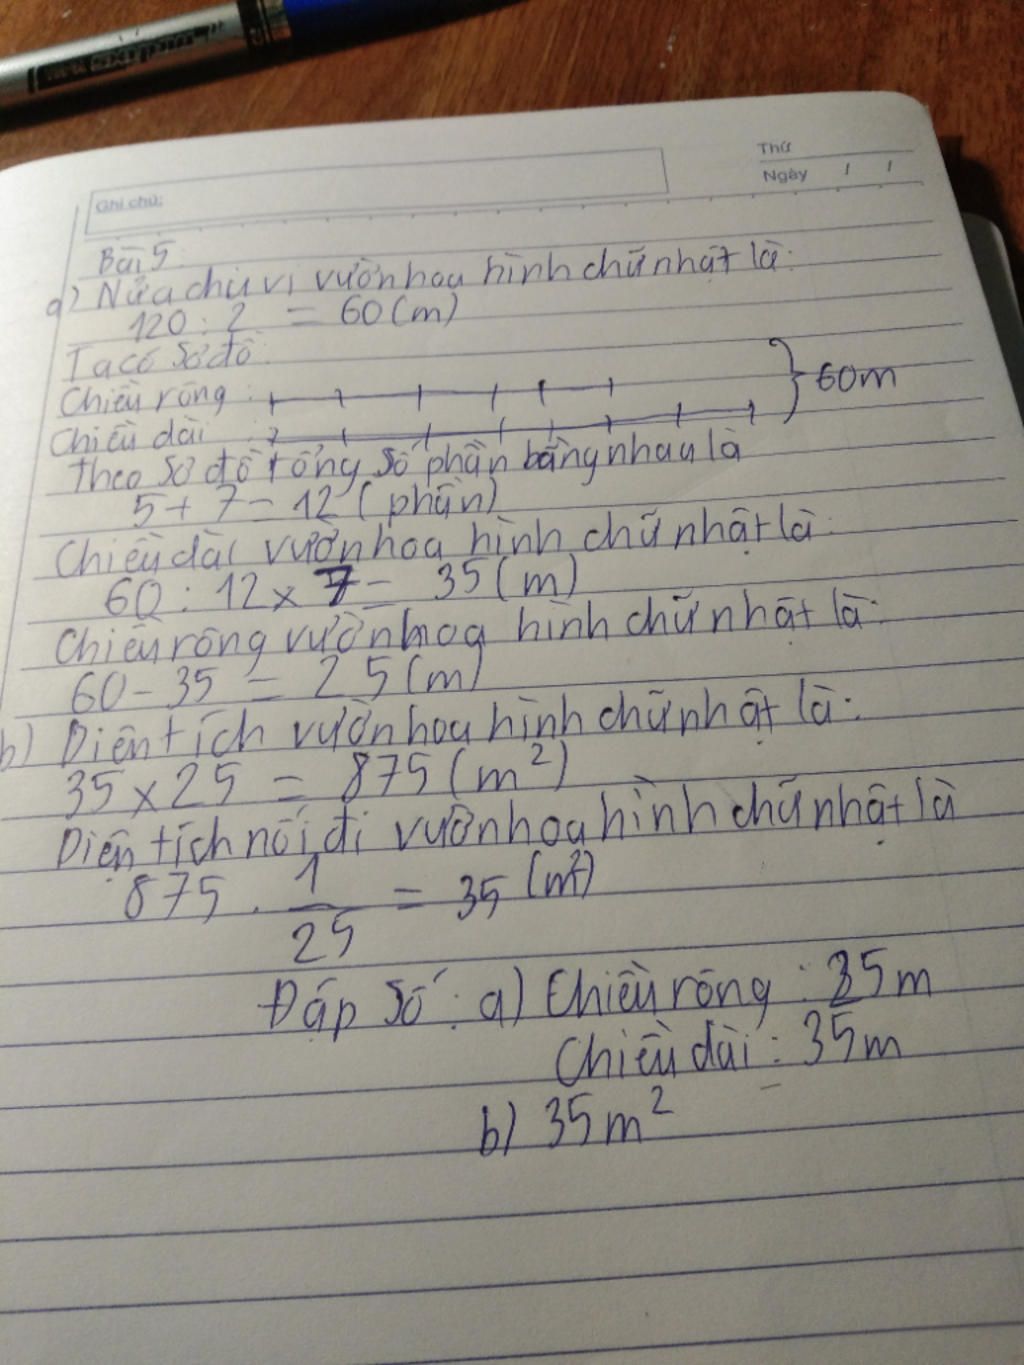 Thứ
Ngày / /
Ghi chú:
Bài 5
a) Nửa chu vi vườn hoa hình chữ nhật là:
120 : 2 = 60 (m)
Ta có sơ đồ
Chiều rộng :
60m
Chiều dài :
Theo sơ đồ tổng số phần bằng nhau là
5 + 7 = 12 (phần)
Chiều dài vườn hoa hình chữ nhật là:
60 : 12 x 7 = 35 (m)
Chiều rộng vườn hoa hình chữ nhật là:
60 - 35 = 25 (m)
b) Diện tích vườn hoa hình chữ nhật là:
35 x 25 = 875 (m²)
Diện tích nối đi vườn hoa hình chữ nhật là
875 . 1/25 = 35 (m²)
Đáp số : a) Chiều rộng : 25m
Chiều dài : 35m
b) 35m²